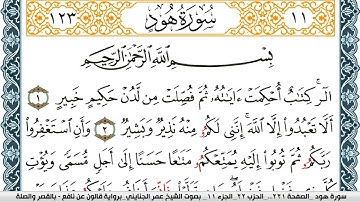 ١١ سُورَةُ هُودٍ ١٢٣
بِسْمِ اللَّهِ الرَّحْمَٰنِ الرَّحِيمِ
الٓر۪ كِتَٰبٌ أُحْكِمَتْ ءَايَٰتُهُۥ ثُمَّ فُصِّلَتْ مِن لَّدُنْ حَكِيمٍ خَبِيرٍ ١
أَلَّا تَعْبُدُوٓا۟ إِلَّا اللَّهَ إِنَّنِى لَكُم مِّنْهُ نَذِيرٌ وَبَشِيرٌ ٢ وَأَنِ اسْتَغْفِرُوا۟
رَبَّكُمْ ثُمَّ تُوبُوٓا۟ إِلَيْهِ يُمَتِّعْكُم مَّتَٰعًا حَسَنًا إِلَىٰٓ أَجَلٍ مُّسَمًّى وَيُؤْتِ
سورة هود الصفحة ٢٢١.. الحزب ٢٢.. الجزء ١١.. بصوت الشيخ عمر الجنايني. برواية قالون عن نافع - بالقصر والصلة